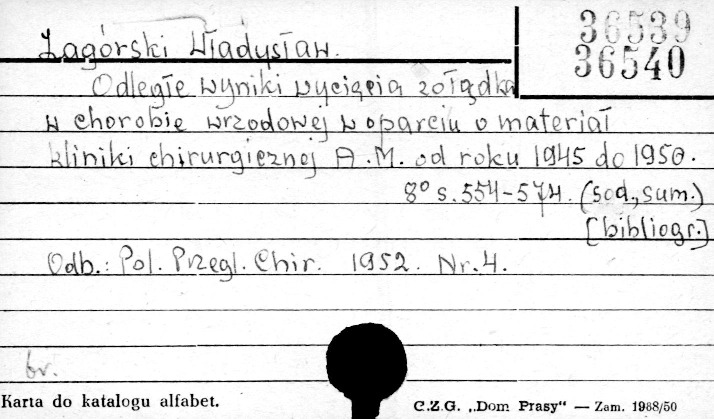 Zagórski Władysław.
36539
36540
Odległe wyniki wycięcia żołądka
w chorobie wrzodowej w oparciu o materiał
kliniki chirurgicznej A.M. od roku 1945 do 1950.
8° s. 554-574. (sod., sum.)
[bibliogr.]
Odb.: Pol. Przegl. Chir. 1952. Nr. 4.
br.
Karta do katalogu alfabet.
C.Z.G. „Dom Prasy“ — Zam. 1988/50